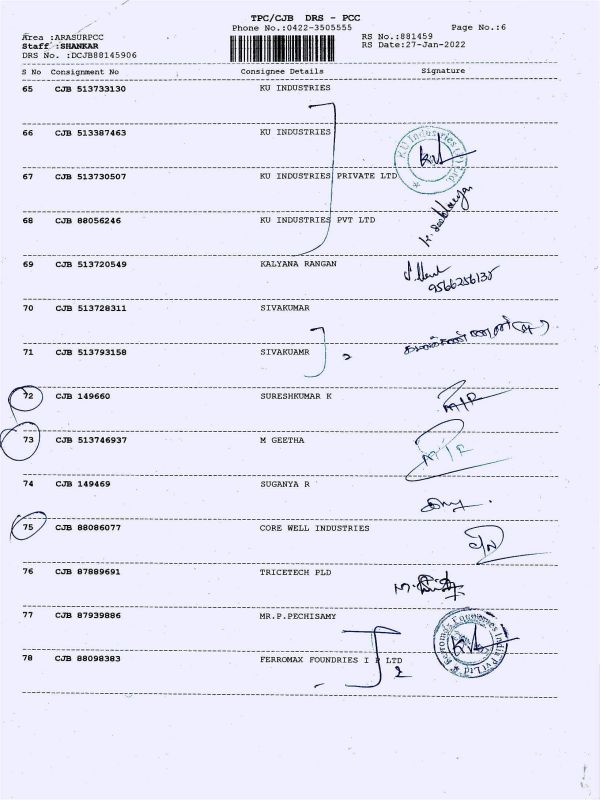 TPC/CJB DRS - PCC
Phone No.:0422-3505555 Page No.:6
Area :ARASURPCC RS No.:881459
Staff :SHANKAR RS Date:27-Jan-2022
DRS No. :DCJB88145906
S No Consignment No Consignee Details Signature
65 CJB 513733130 KU INDUSTRIES
66 CJB 513387463 KU INDUSTRIES
67 CJB 513730507 KU INDUSTRIES PRIVATE LTD
68 CJB 88056246 KU INDUSTRIES PVT LTD
69 CJB 513720549 KALYANA RANGAN
9566256135
70 CJB 513728311 SIVAKUMAR
71 CJB 513793158 SIVAKUAMR 2
72 CJB 149660 SURESHKUMAR K
73 CJB 513746937 M GEETHA
74 CJB 149469 SUGANYA R
75 CJB 88086077 CORE WELL INDUSTRIES
76 CJB 87889691 TRICETECH PLD
77 CJB 87939886 MR.P.PECHISAMY
78 CJB 88098383 FERROMAX FOUNDRIES I P LTD 2